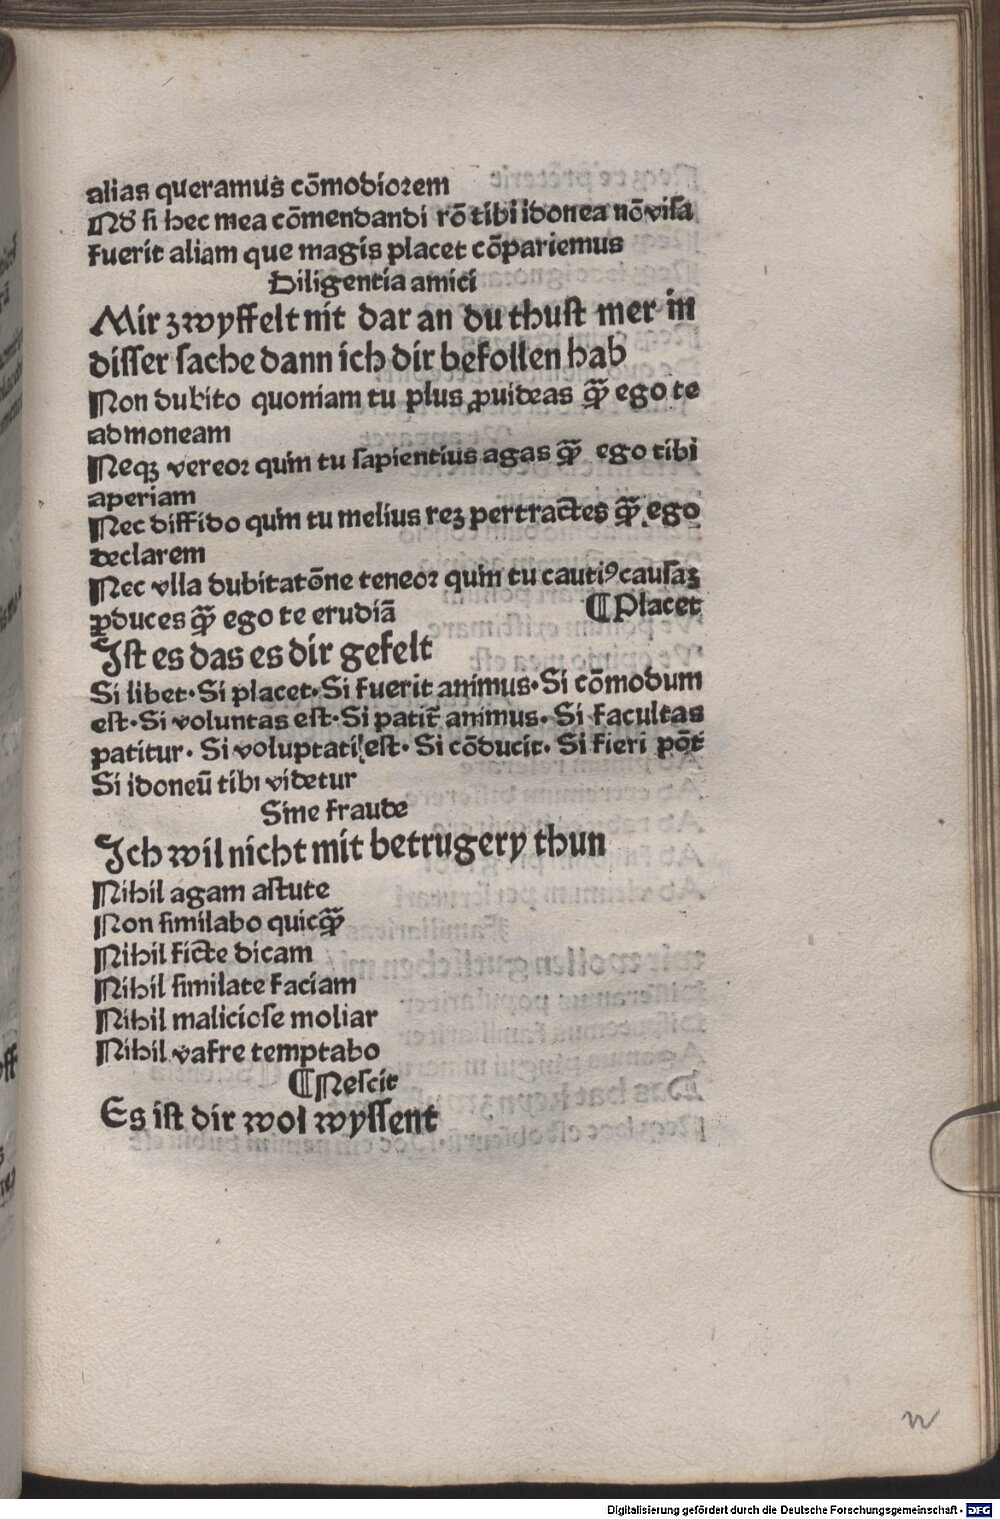 alias queramus cōmodiorem
Nō si hec mea cōmendandi rō tibi idonea nō visa
fuerit aliam que magis placet cōpariemus
Diligentia amici
Mir zwyffelt nit dar an du thust mer in
disser sache dann ich dir befollen hab
Non dubito quoniam tu plus ꝓuideas qͫ̄ ego te
admoneam
Neqꝫ vereoꝛ quin tu sapientius agas qͫ̄ ego tibi
aperiam
Nec diffido quin tu melius reꝫ pertractes qͫ̄ ego
declarem
Nec vlla dubitatōne teneoꝛ quin tu cautiꝰ causaꝫ
ꝓduces qͫ̄ ego te erudiā ¶ Placet
Ist es das es dir gefelt
Si libet· Si placet· Si fuerit animus· Si cōmodum
est· Si voluntas est· Si patit̄ animus· Si facultas
patitur· Si voluptati est· Si cōducit· Si fieri pōt
Si idoneū tibi videtur
Sine fraude
Ich wil nicht mit betrugery thun
Nihil agam astute
Non similabo quicqͫ̄
Nihil ficte dicam
Nihil similate faciam
Nihil maliciose moliar
Nihil vafre temptabo
¶ Nescit
Es ist dir wol wyssent
n
Digitalisierung gefördert durch die Deutsche Forschungsgemeinschaft - DFG